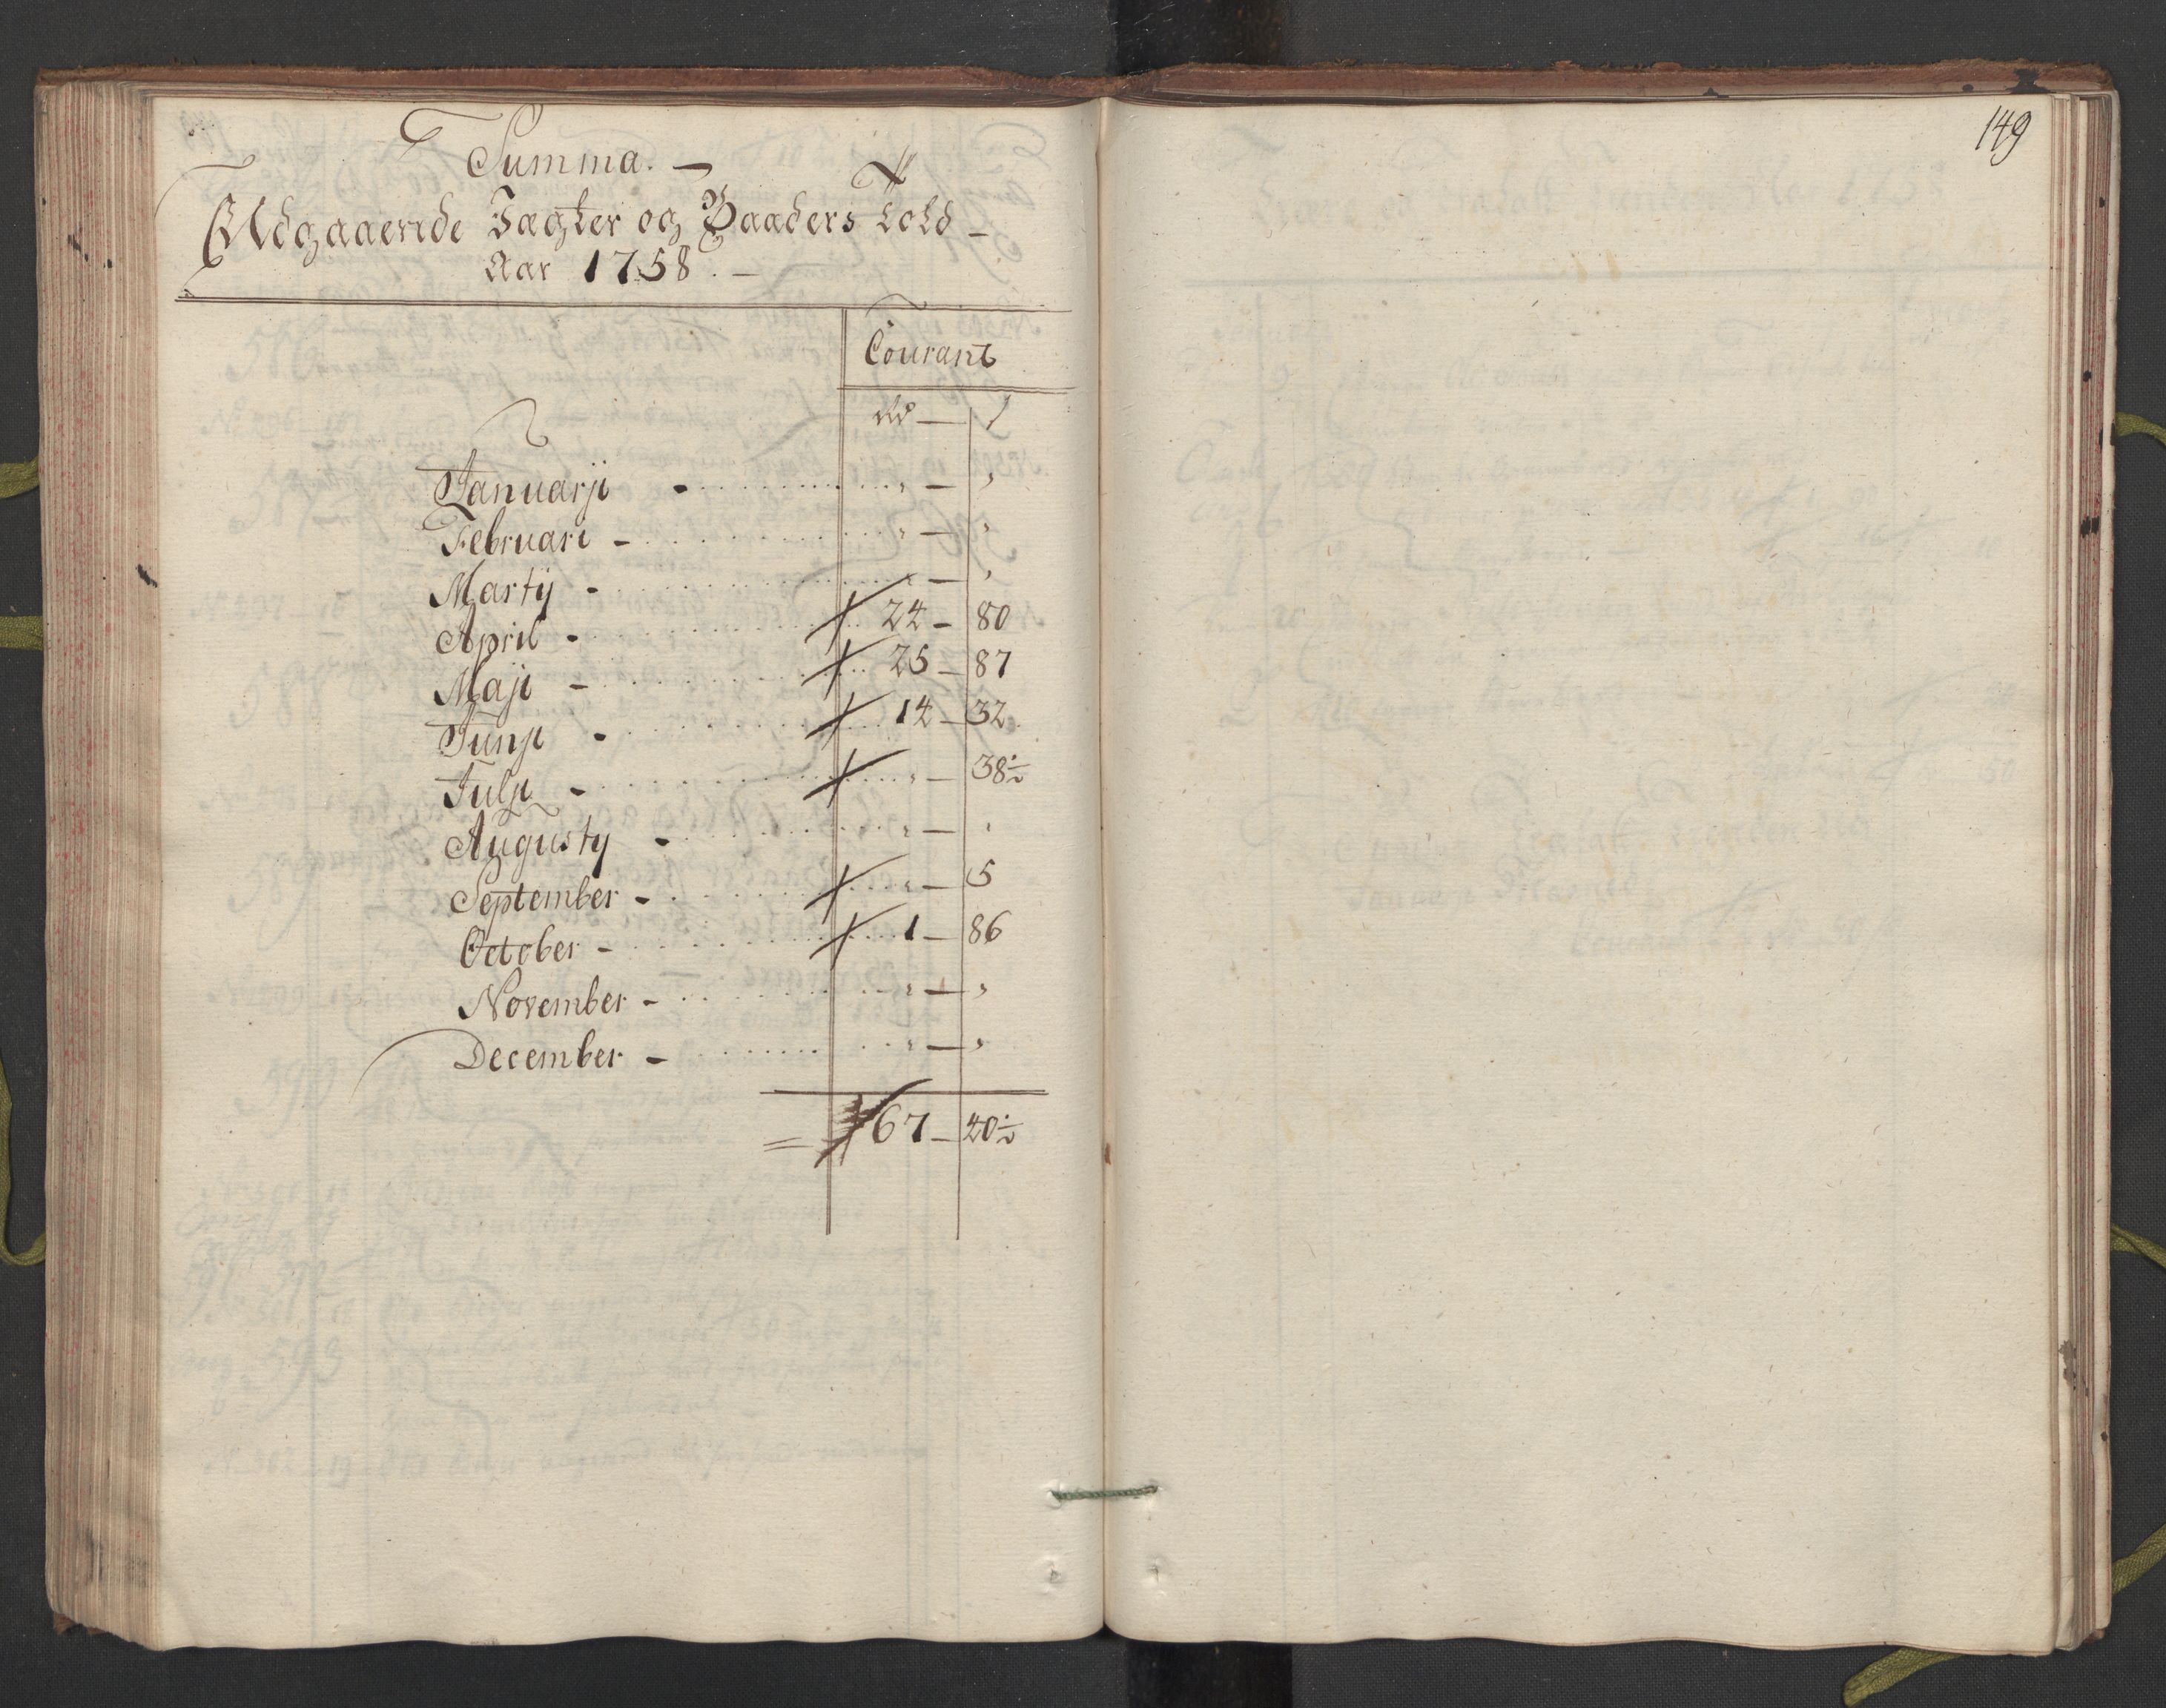 Summa. —
Udgaaende Jægter og Baaders Told —
Aar 1758. —
Courant
Rd — s
Januarji - . . . . . . . . . . „ — „
Februari - . . . . . . . . . . „ — „
Martij - . . . . . . . . . . „ — „
April - . . . . . . . . . . 24 — 80
Maji - . . . . . . . . . . 25 — 87
Junji - . . . . . . . . . . 14 — 32
Julji - . . . . . . . . . . „ — 38½
Augustij - . . . . . . . . . . „ — „
September - . . . . . . . . . . „ — 5
October - . . . . . . . . . . 1 — 86
November - . . . . . . . . . . „ — „
December - . . . . . . . . . . „ — „
= 67 — 40½
149